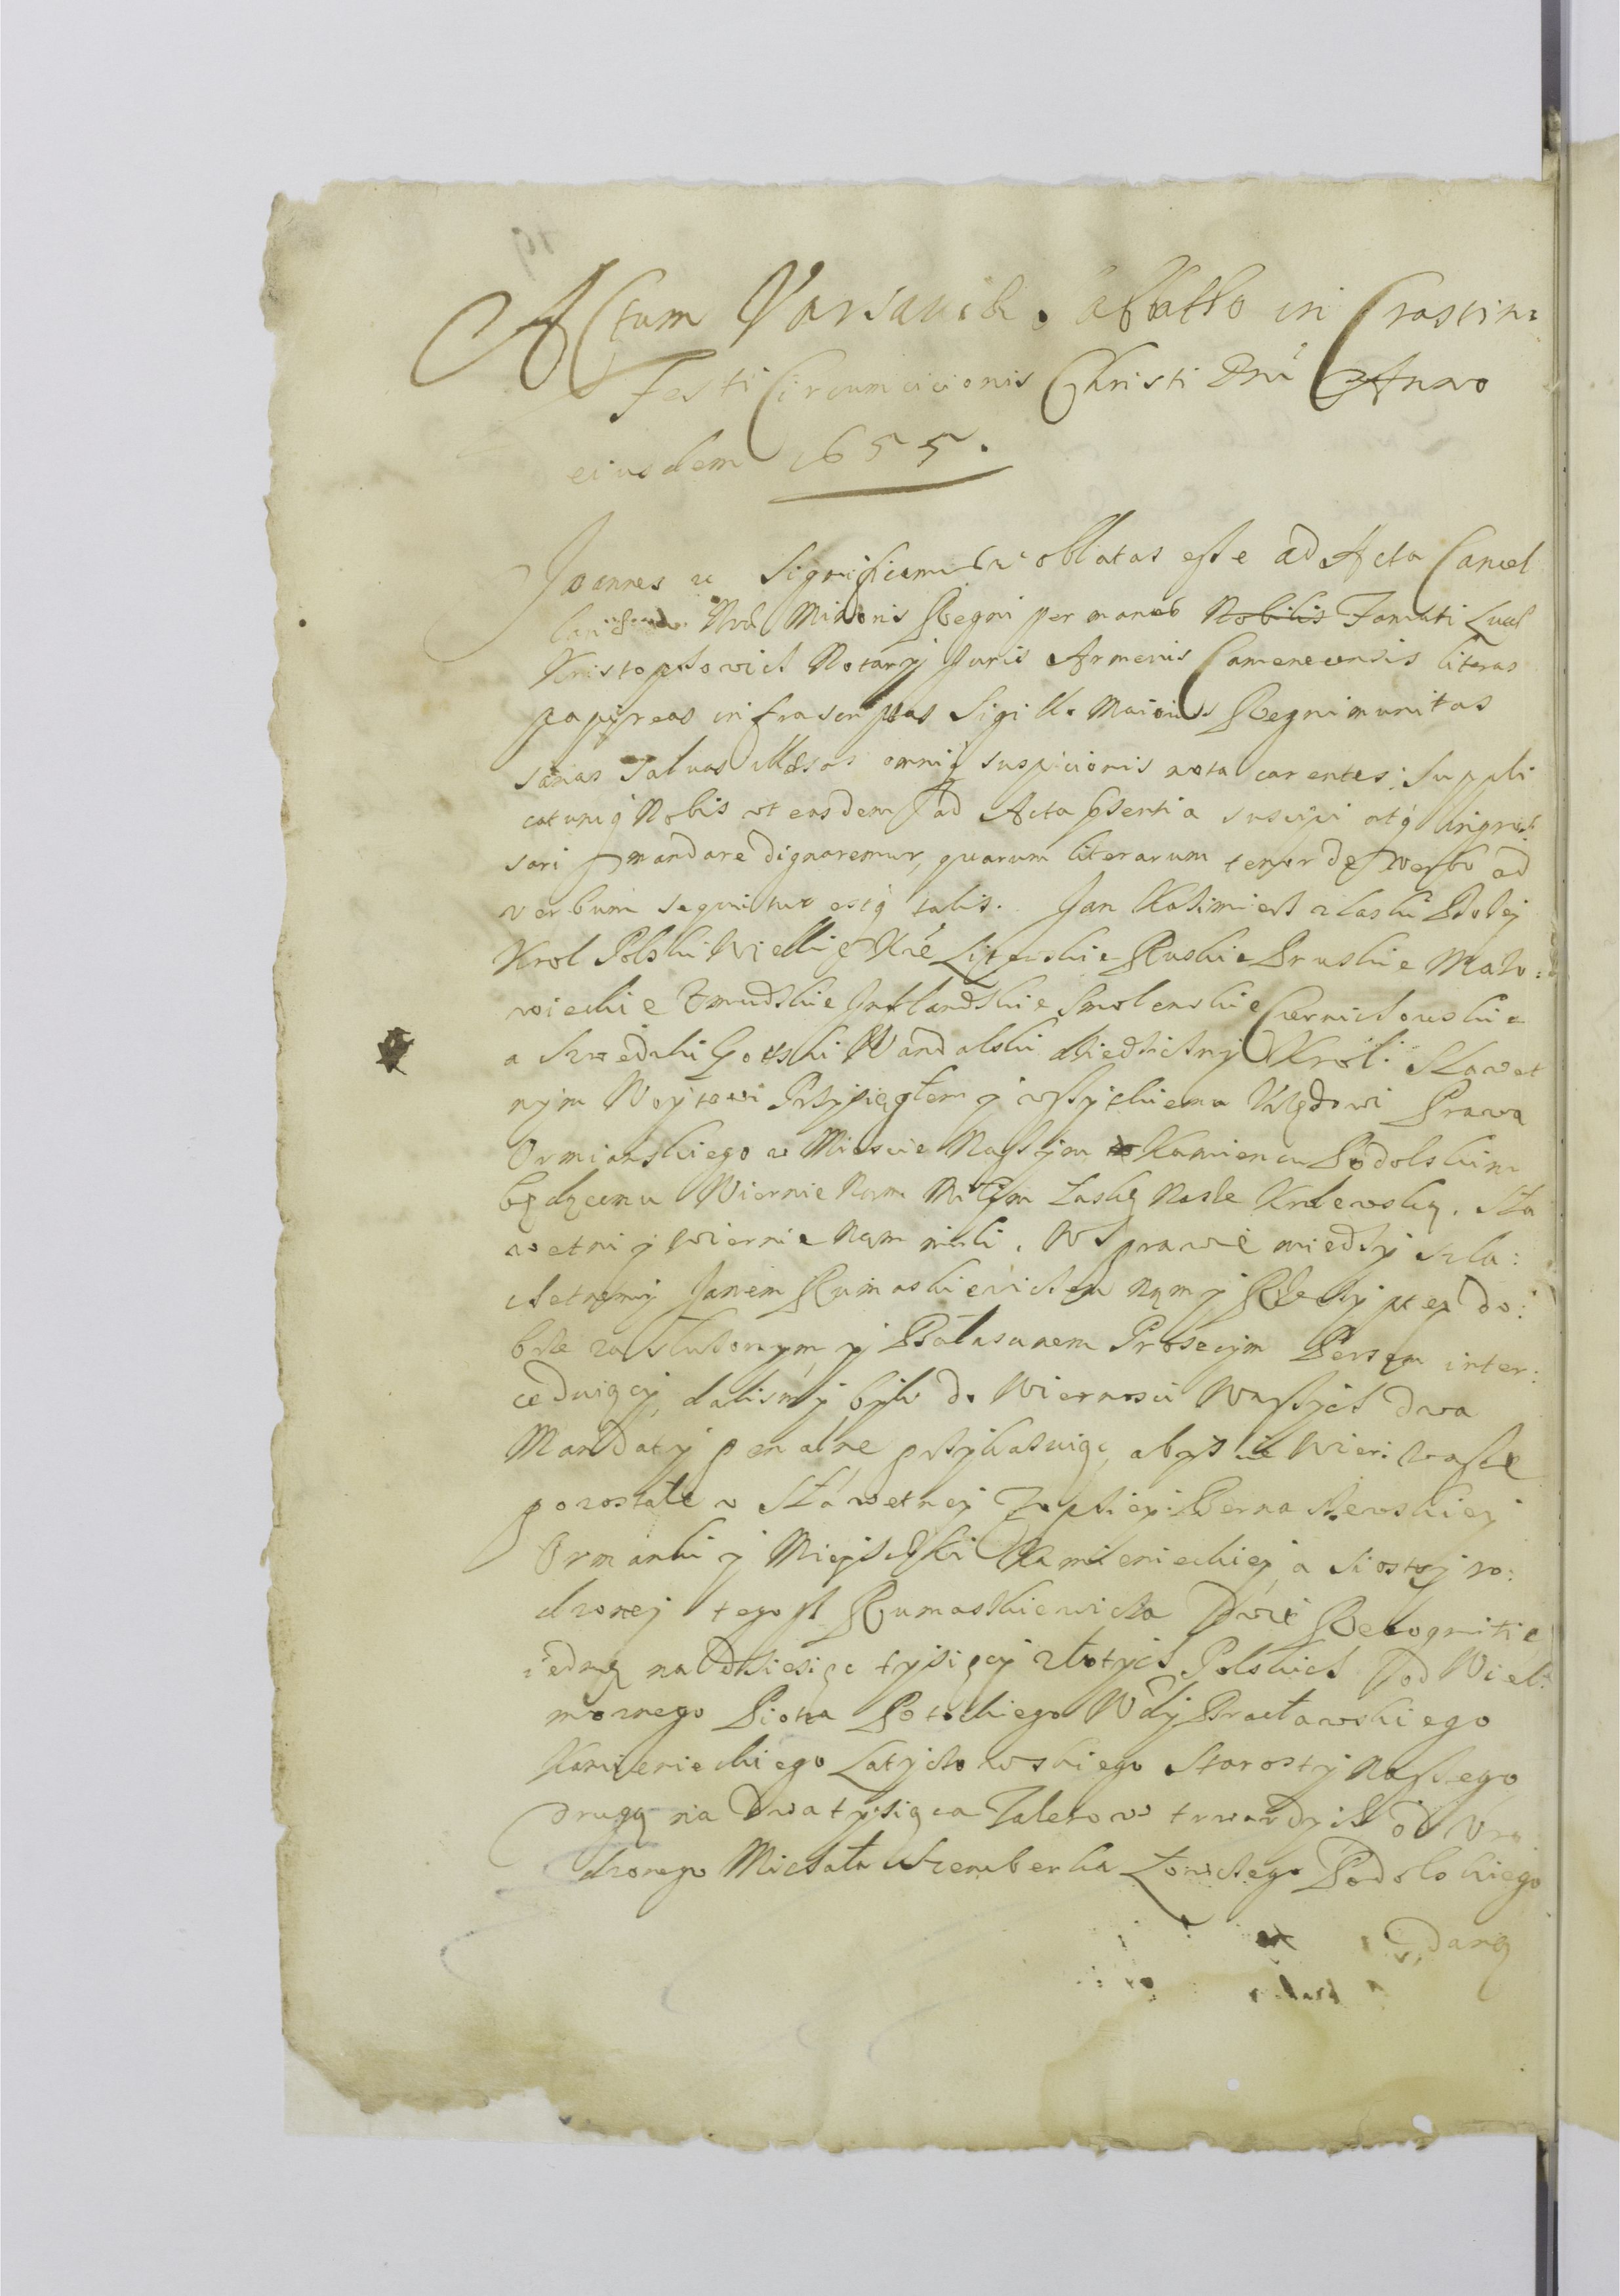 Actum Varsaviae Sabatho in Crastino
Festi Circumcicionis Christi Dni Anno
eiusdem 1655.
Joannes etc Significamus etc oblatas esse ad Acta Cancel
Nra Minoris Regni per manus Nobilis Famati Lucae
Kristophowicz Notary Juris Armenis Camenecensis literas
papyreas infrascriptas Sigillo Maioris Regni munitas
sanas salvas illaesas omniq suspicionis nota carentes: Suppli
catumq Nobis ut easdem ad Acta pσsentia suscipi atq ingros
sari mandare dignaremur, quarum literarum tenor de verbo ad
verbum sequitur estq talis. Jan Kazimierz z laski Bożej
Krol Polski Wielkie Xże Litewskie Ruskie Pruskie Mazo:
wieckie Zmudzkie Inflandzkie Smolenskie Czernichowskie
a Szwedzki Gotski Wandalski dziedziczny Krol. Sławet
nym Woytowi Przysięgłem y wszytkiemu Urzędowi Prawa
Ormianskiego w Miescie Naszym Kamiencu Podolskim
będącemu Wiernie Nam Miłym łaskę Nasze Krolewską. Sła
wetni y wiernie Nam mili. W sprawie miedzy szla:
chetnymy Janem Rumaskiewiczem Nam y Rzeczyptey do:
brze zasłużonym, y Bałasanem Persem inter:
ceduiący, dalismy byli do Wiernosci Waszych dwa
Mandaty penalne przykazuiąc, abyscie Wier: wasze
pozostałe u Sławetney Zophiey Bernaszewskiey
Ormanki y Mieyszczki Kamienieckiey, a siostry ro:
dzoney tegosz Rumaszkiewicza Dwie Rekognitie
iednę na dziesięc tysięcy złotych Polskich od Wiel:
możnego Piotra Potockiego Wdy Bracławskiego
Kamienieckiego Latyczowskiego Starosty Naszego
drugą na dwa tysiąca Talerow twardych od Uro
dzonego Michała Łowczego Podolskiego
daną